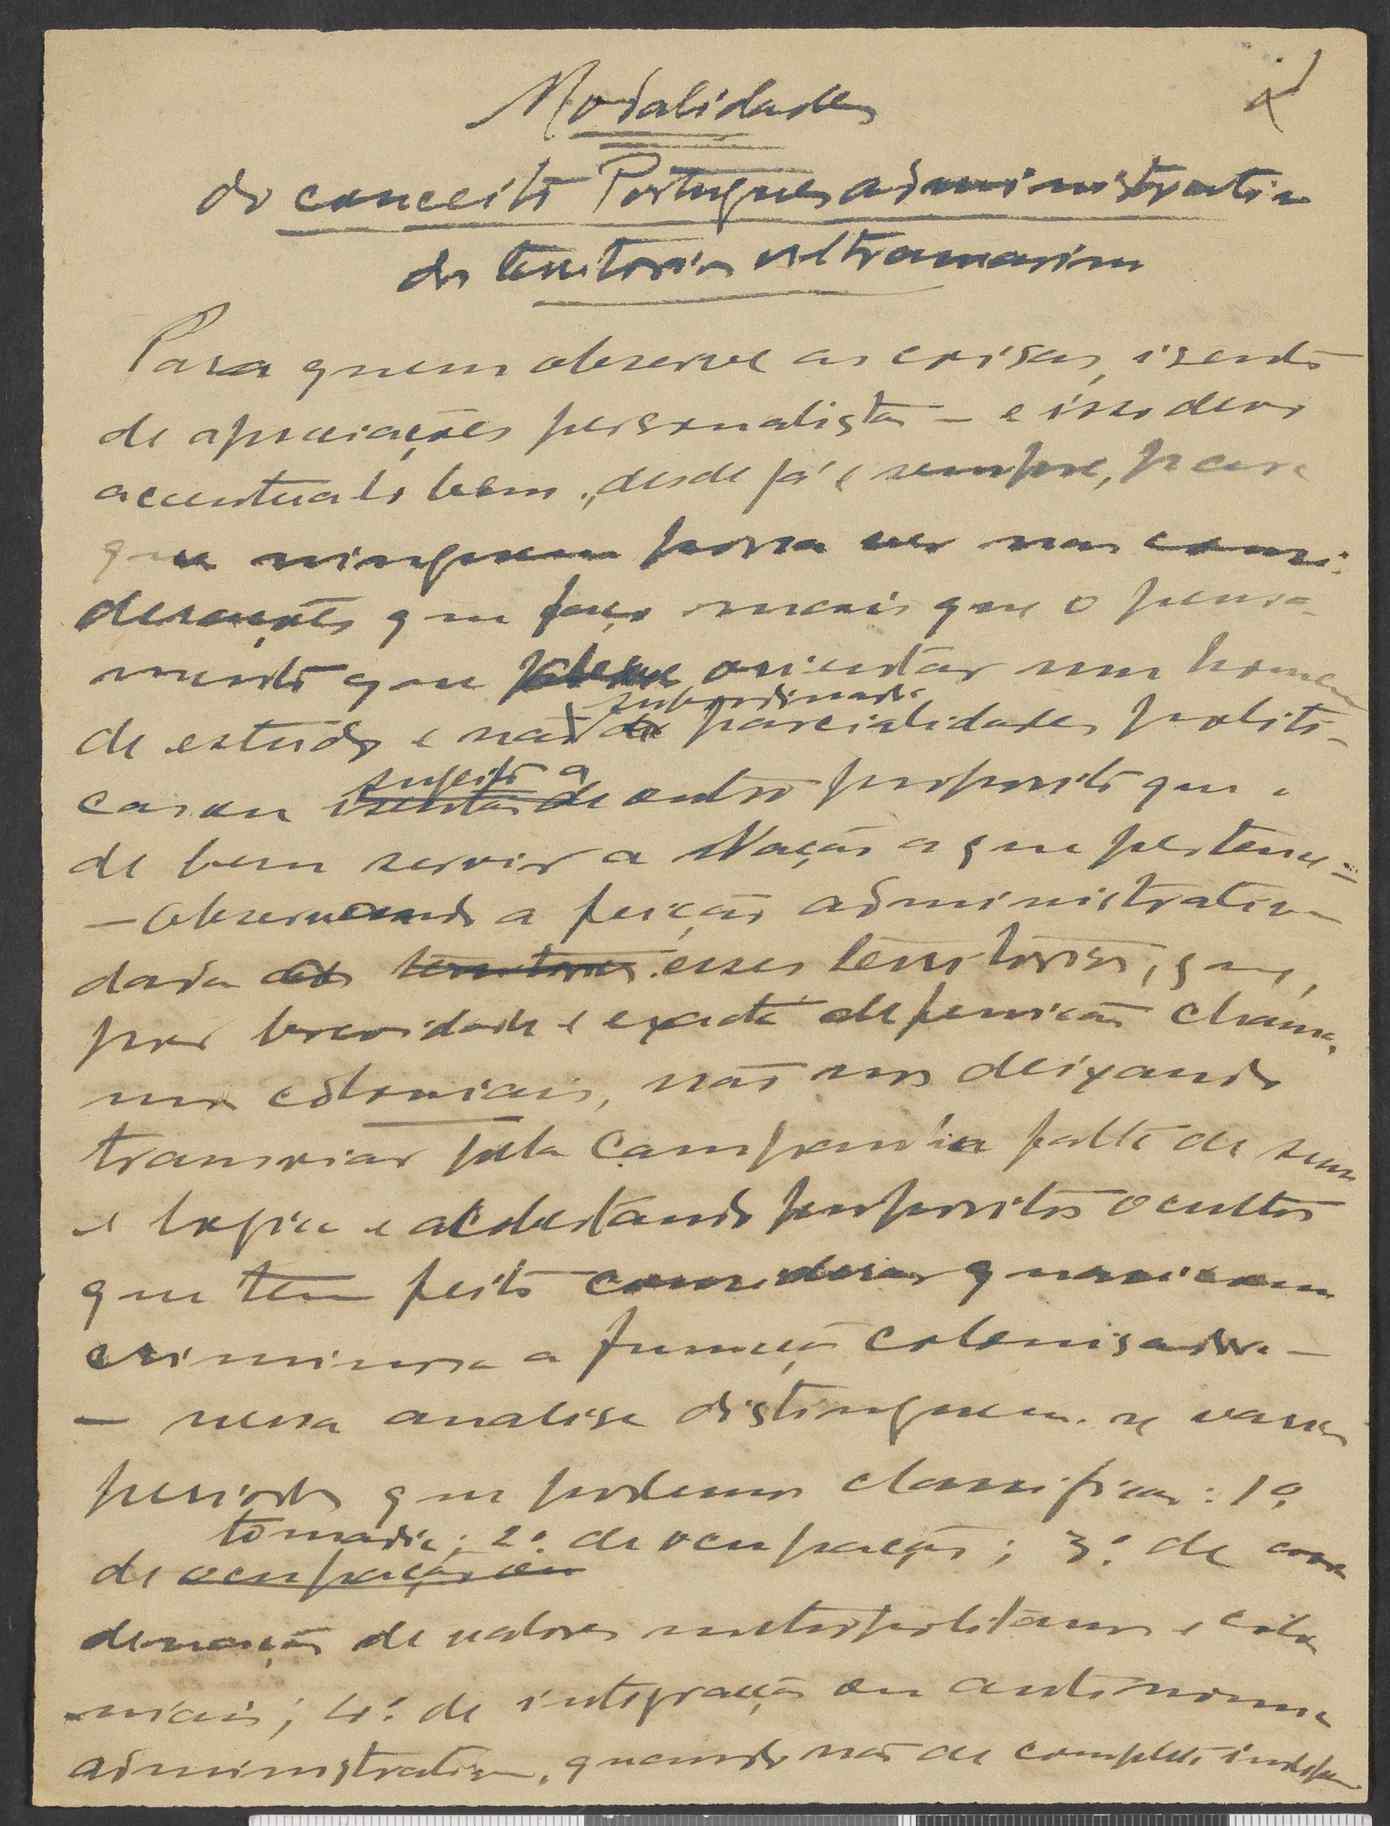 Modalidades
do conceito Português administrativo
dos territorios ultramarinos
Para quem observe as coisas, isento
de apreciações personalistas – e isso devo
accentual-o bem, desde já e sempre, para
que ninguem possa ver nas consi-
derações que faço mais que o pensa-
mento que orientar um homem
subordinado
de estudo e não a parcialidades politi-
sujeito a
cas ou isentas de outro proposito que o
de bem servir a Nação a que pertence –
– observando a feição administrativa
dada aos territorios esses territorios, que,
por brevidade e exacta definição chama-
mos coloniais, não nos deixando
transviar pela campanha falta de senso
e logica e acobertando propositos ocultos
que tem feito considerar quasi como
criminosa a função colonisadora –
– nessa analise distinguem-se varios
periodos que podemos classificar: 1º
tomadia; 2º de ocupação; 3º de coor-
de ocupação ou
denação de valores metropolitanos e colo-
niais; 4º de integração ou autonomia
administrativa, quando não de completa indepen-